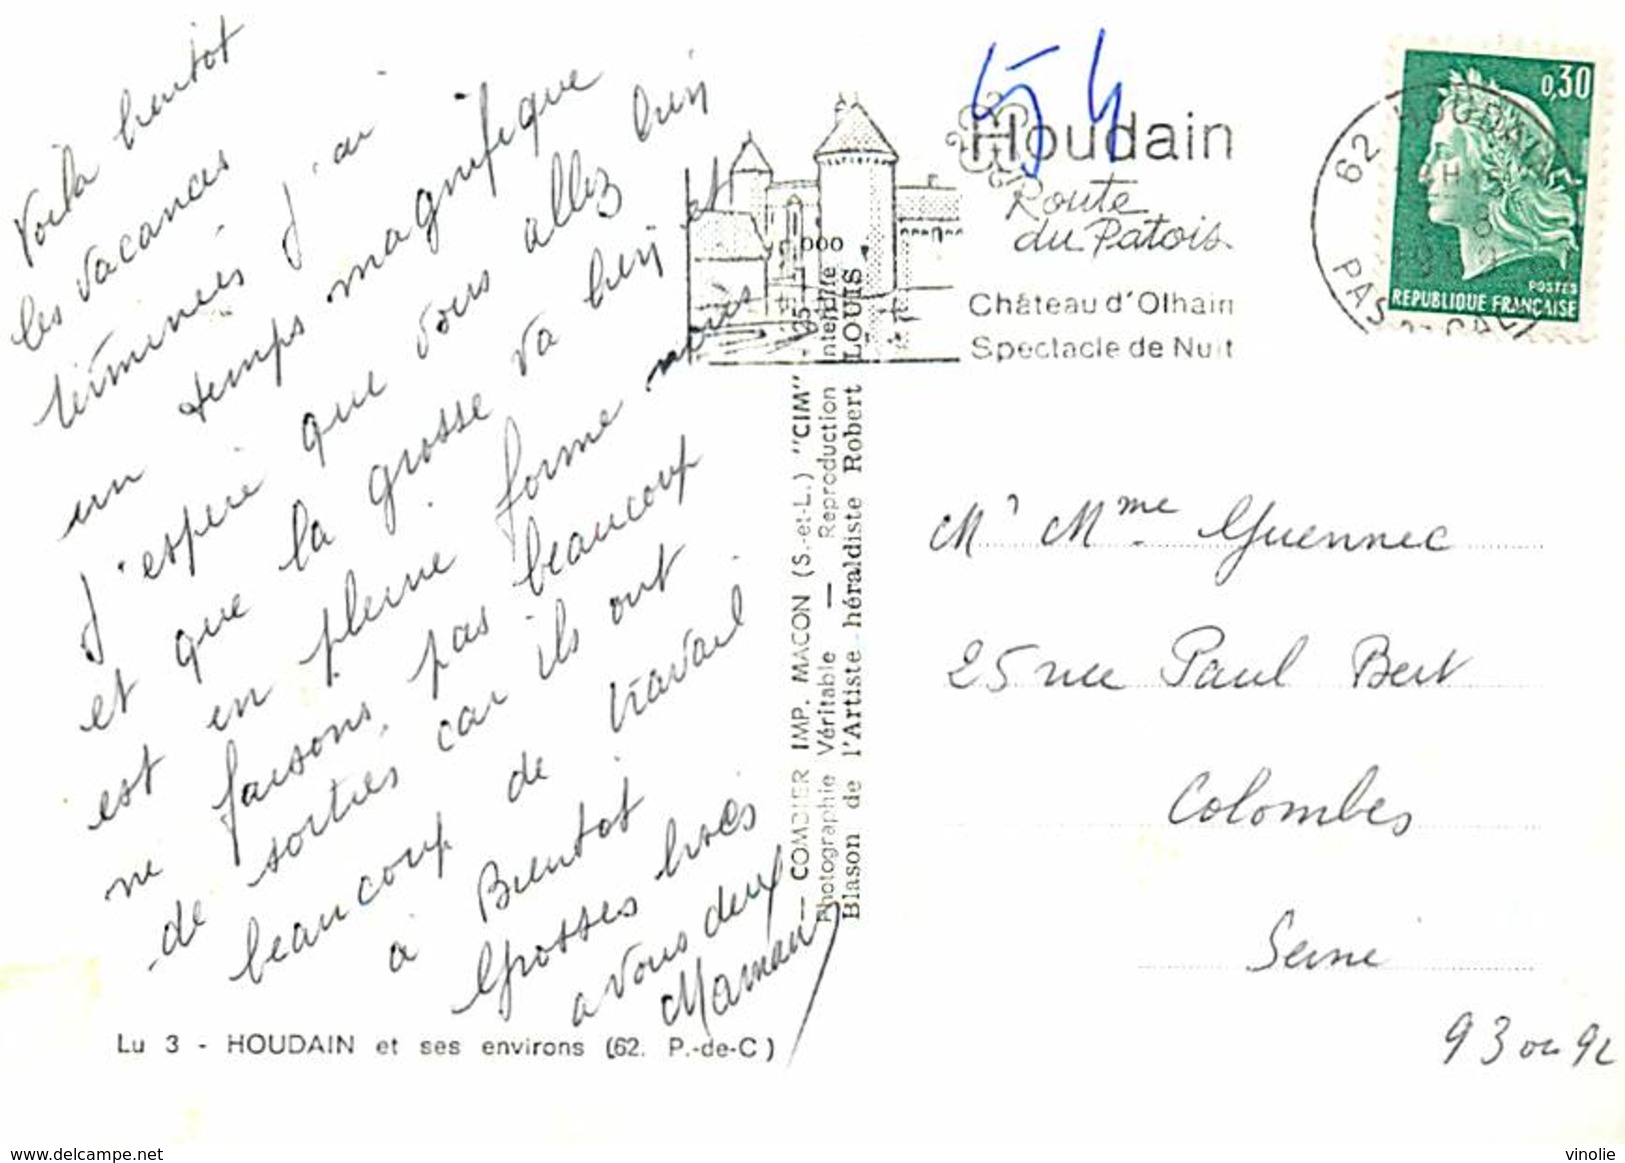 Voila bientot
les vacances
terminées j'ai
un temps magnifique
J'espere que vous allez bien
et que la grosse va bien et
est en pleine forme nous
ne faisons pas beaucoup
de sorties car ils ont
beaucoup de travail
a Bientot
Grosses bises
a vous deux
Maman
Lu 3 - HOUDAIN et ses environs (62. P.-de-C)
— COMBIER IMP. MACON (S.-et-L.) "CIM"
Photographie Véritable — Reproduction interdite
Blason de l'Artiste héraldiste Robert LOUIS
54
Houdain
Route
du Patois
Château d'Olhain
Spectacle de Nuit
62 HOUDAIN
PAS DE CALAIS
0,30
POSTES
REPUBLIQUE FRANÇAISE
Mr Mme Guennec
25 rue Paul Bert
Colombes
Seine
93 ou 92
www.delcampe.net
vinolie